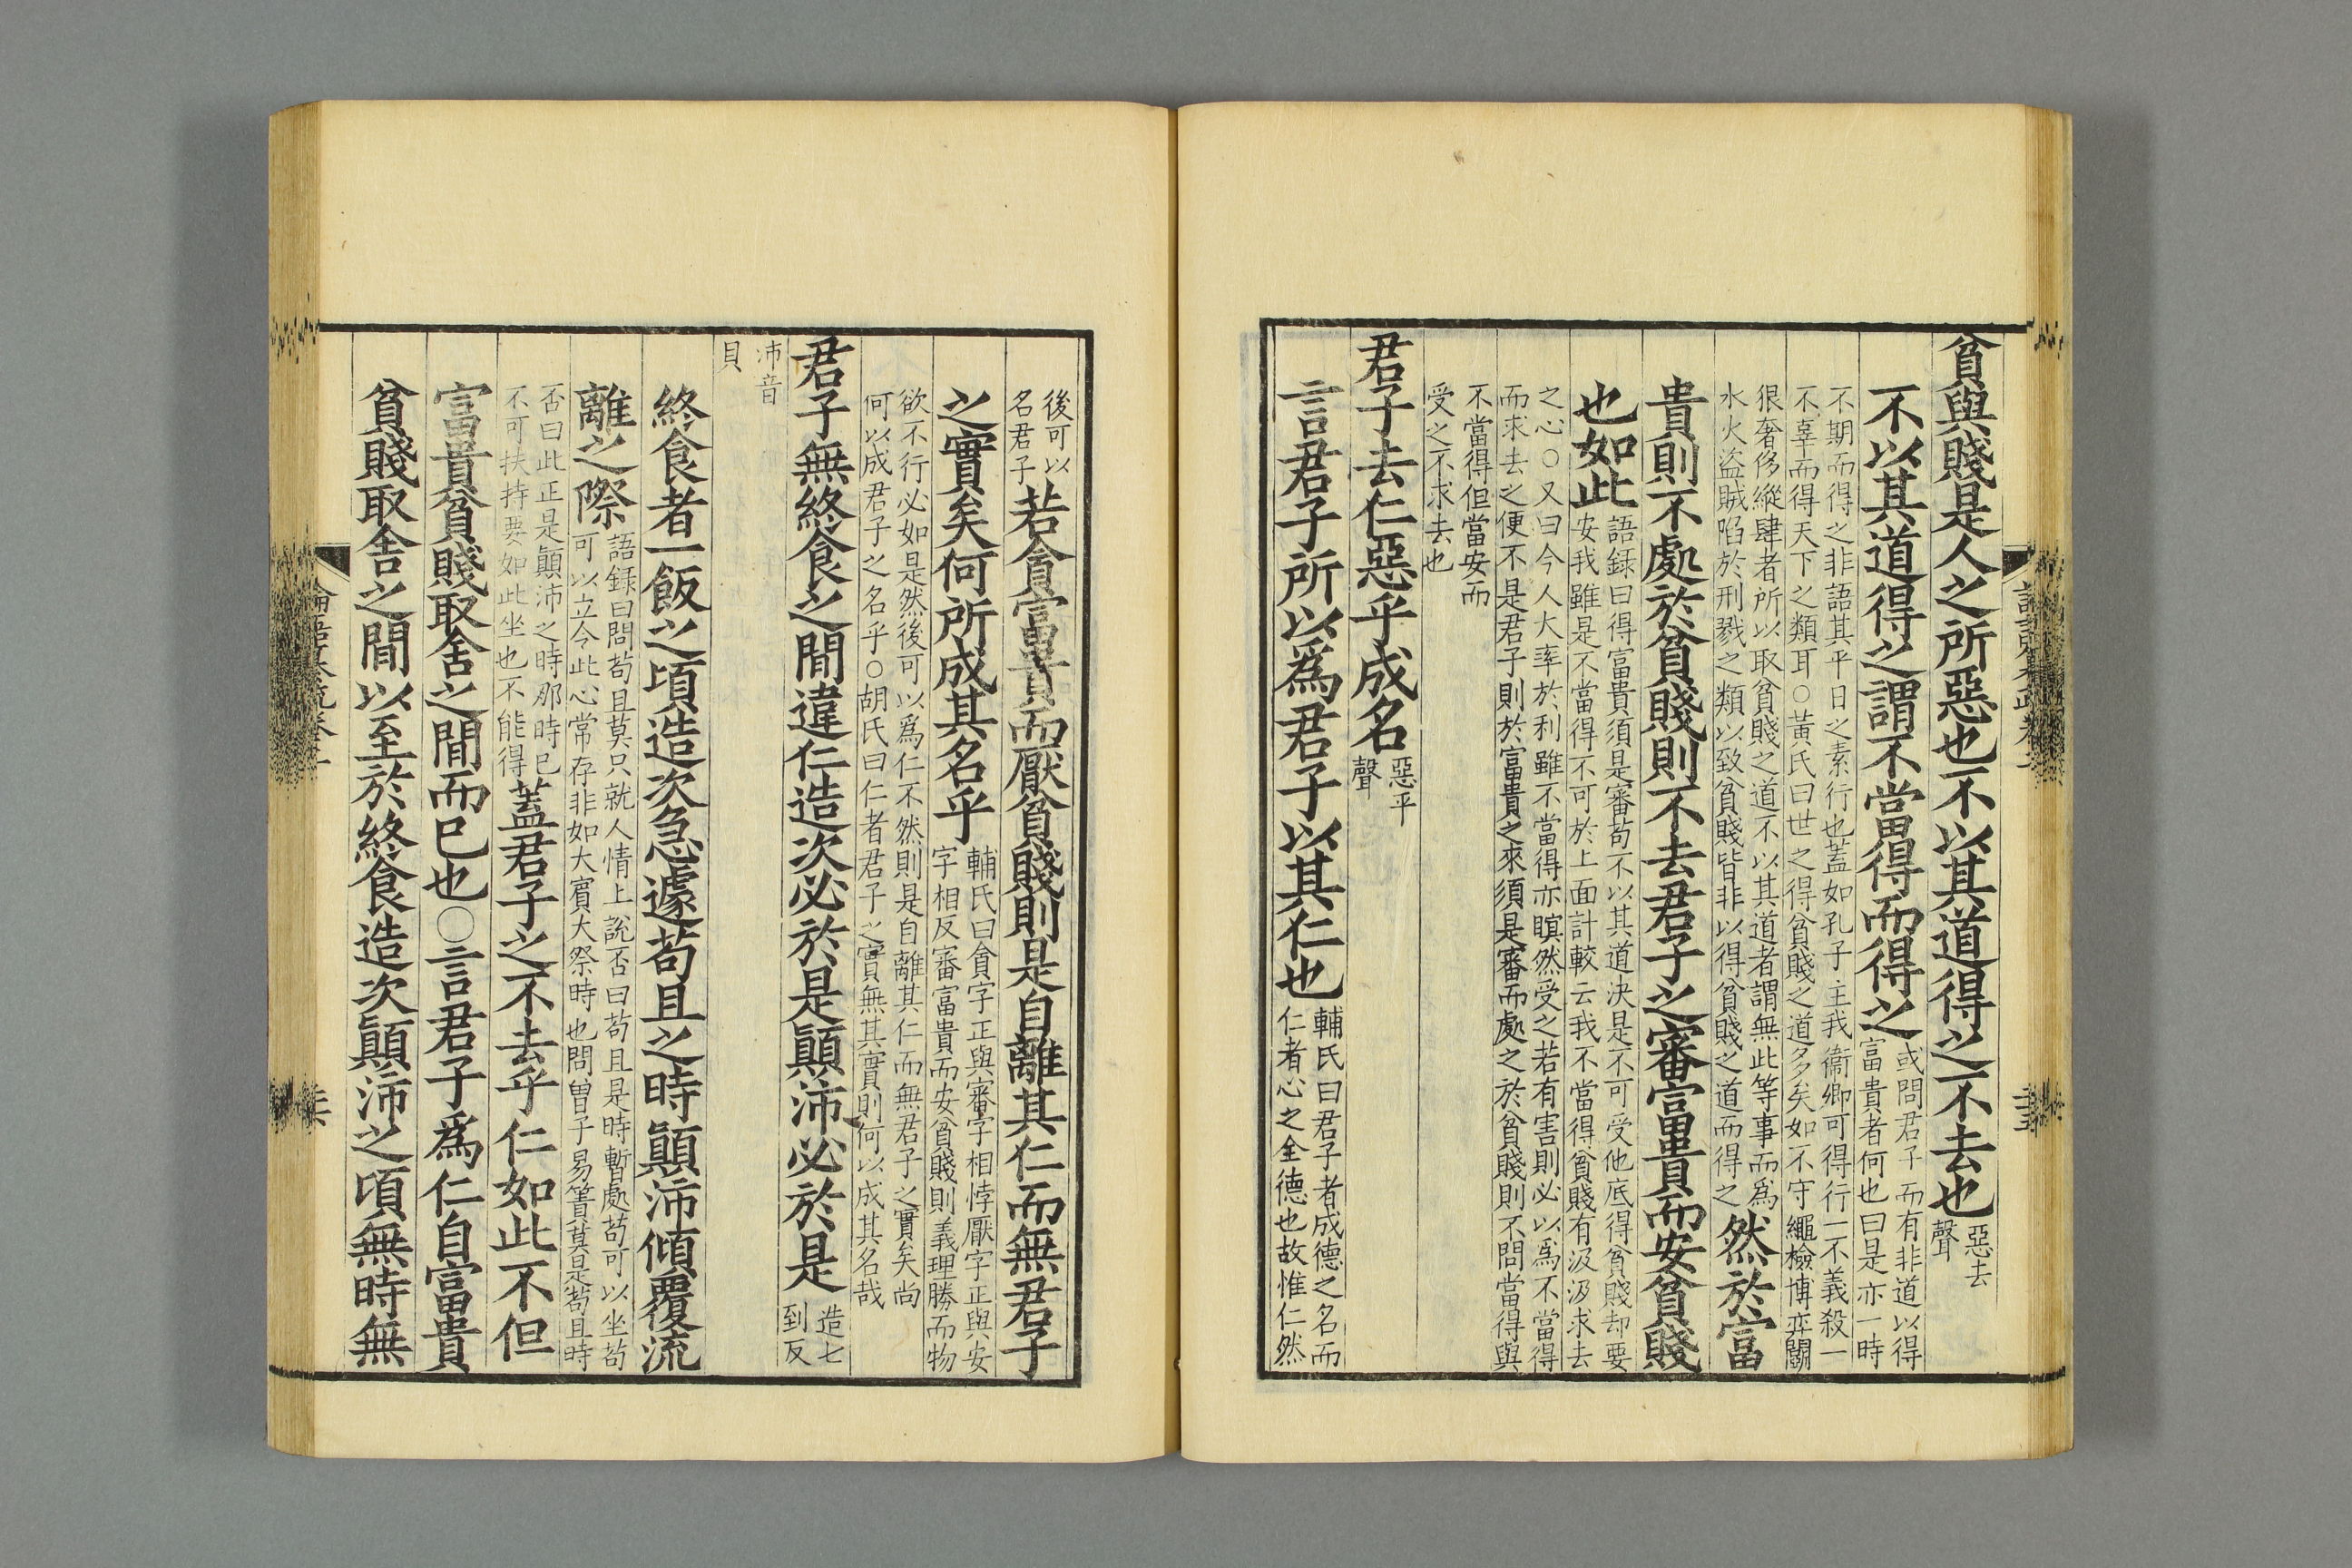 貧與賤是人之所惡也不以其道得之不去也惡去
聲
不以其道得之謂不當得而得之或問君子而有非道以得
富貴者何也曰是亦一時
不期而得之非語其平日之素行也蓋如孔子主我衞卿可得行一不義殺一
不辜而得天下之類耳○黃氏曰世之得貧賤之道多矣如不守繩檢博弈鬬
很奢侈縱肆者所以取貧賤之道不以其道者謂無此等事而爲
水火盜賊陷於刑戮之類以致貧賤皆非以得貧賤之道而得之然於富
貴則不處於貧賤則不去君子之審富貴而安貧賤
也如此語録曰得富貴須是審苟不以其道決是不可受他底得貧賤却要
安我雖是不當得不可於上面計較云我不當得貧賤有汲汲求去
之心○又曰今人大率於利雖不當得亦瞑然受之若有害則必以爲不當得
而求去之便不是君子則於富貴之來須是審而處之於貧賤則不問當得與
不當得但當安而
受之不求去也
君子去仁惡乎成名惡平
聲
言君子所以爲君子以其仁也輔氏曰君子者成德之名而
仁者心之全德也故惟仁然
後可以
名君子若貪富貴而厭貧賤則是自離其仁而無君子
之實矣何所成其名乎輔氏曰貪字正與審字相悖厭字正與安
字相反審富貴而安貧賤則義理勝而物
欲不行必如是然後可以爲仁不然則是自離其仁而無君子之實矣尚
何以成君子之名乎○胡氏曰仁者君子之實無其實則何以成其名哉
君子無終食之間違仁造次必於是顚沛必於是造七
到反
沛音
貝
終食者一飯之頃造次急遽苟且之時顚沛傾覆流
離之際語録曰問苟且莫只就人情上說否曰苟且是時暫處苟可以坐苟
可以立令此心常存非如大賓大祭時也問曾子易簀莫是苟且時
否曰此正是顚沛之時那時已
不可扶持要如此坐也不能得蓋君子之不去乎仁如此不但
富貴貧賤取舍之間而已也○言君子爲仁自富貴
貧賤取舍之間以至於終食造次顚沛之頃無時無